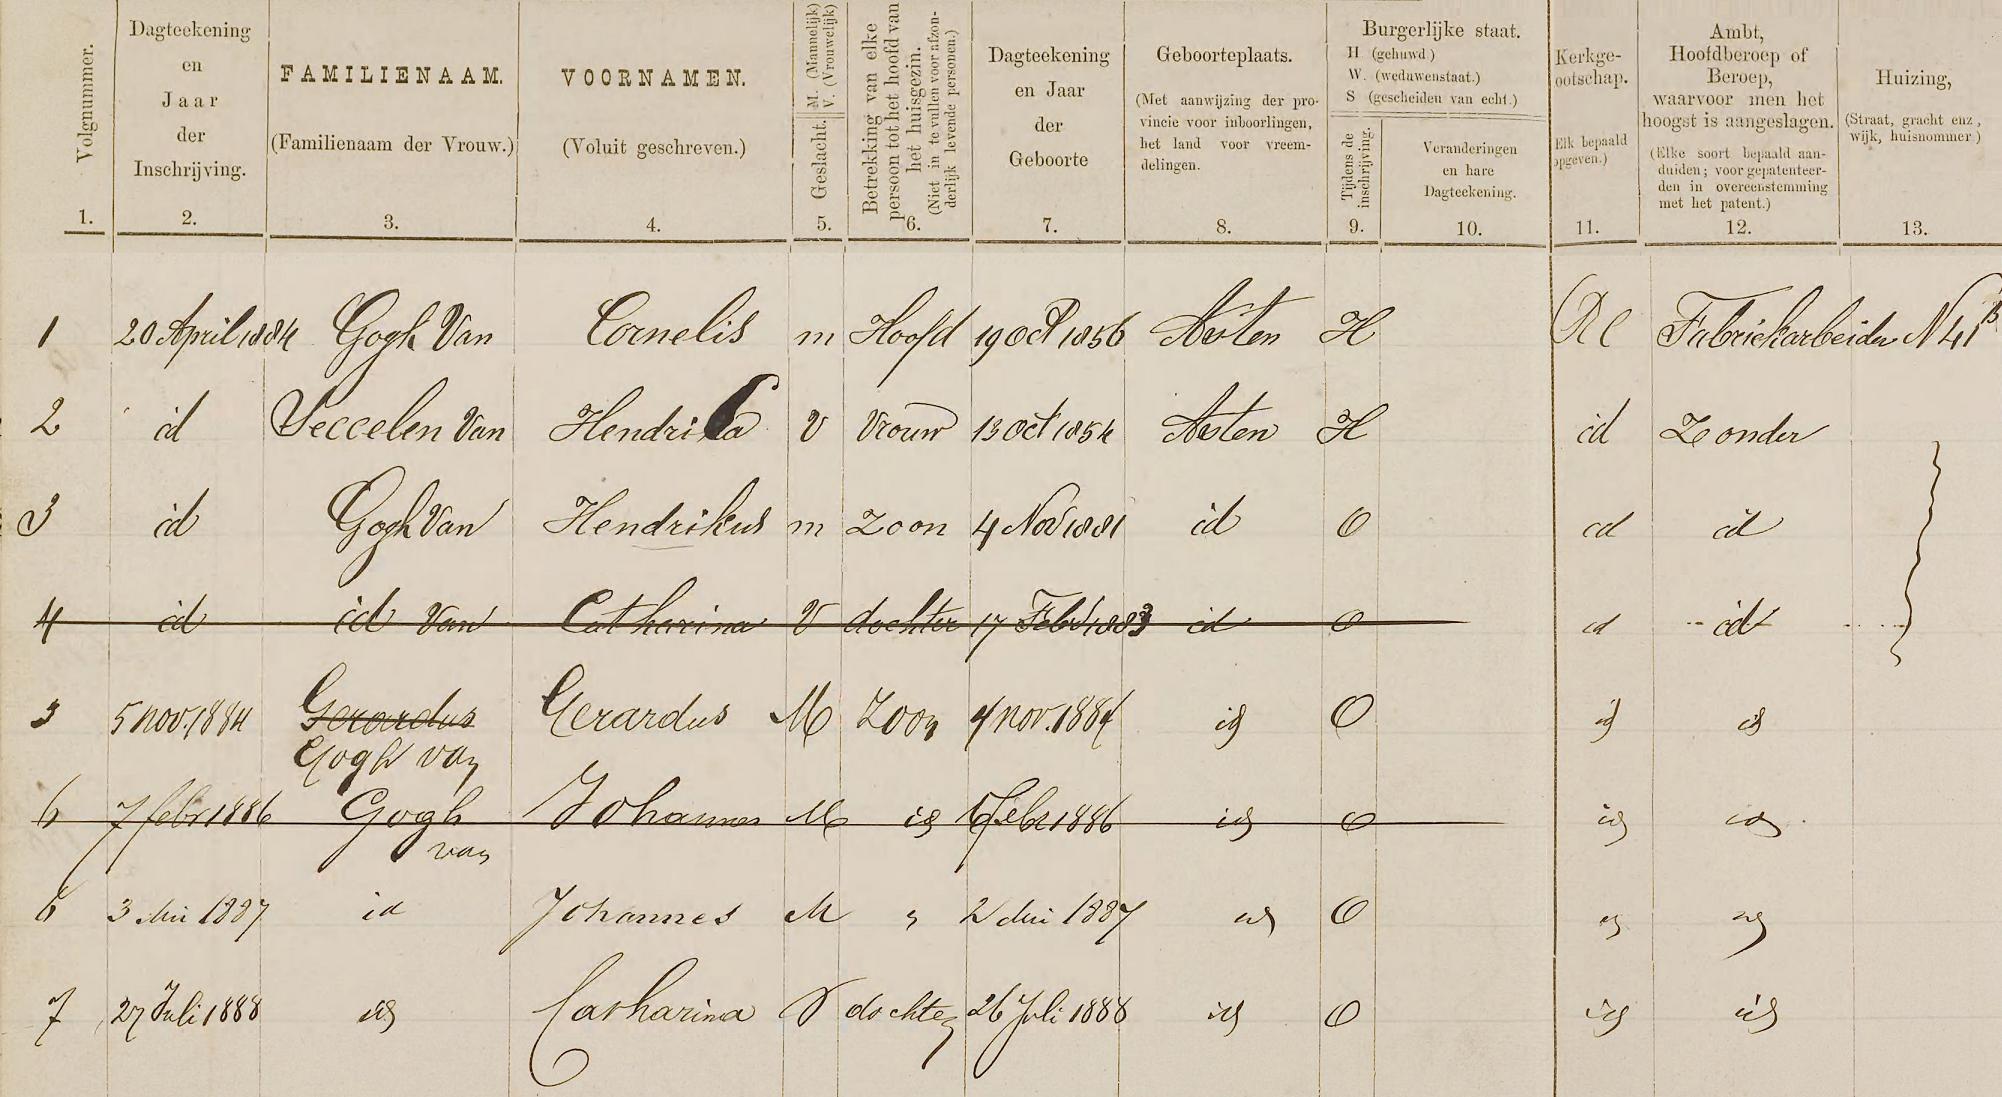 Volgnummer. 1.
Dagteekening en Jaar der Inschrijving. 2.
FAMILIENAAM. (Familienaam der Vrouw.) 3.
VOORNAMEN. (Voluit geschreven.) 4.
Geslacht. M. (Mannelijk) V. (Vrouwelijk) 5.
Betrekking van elke persoon tot het hoofd van het huisgezin. (Niet in te vullen voor afzonderlijk levende personen.) 6.
Dagteekening en Jaar der Geboorte 7.
Geboorteplaats. (Met aanwijzing der provincie voor inboorlingen, het land voor vreemdelingen. 8.
Burgerlijke staat. H (gehuwd) W. (weduwenstaat.) S (gescheiden van echt.)
Tijdens de inschrijving. 9.
Veranderingen en hare Dagteekening. 10.
Kerkge-ootschap. Elk bepaald opgeven.) 11.
Ambt, Hoofdberoep of Beroep, waarvoor men het hoogst is aangeslagen. (Elke soort bepaald aanduiden; voor gepatenteerden in overeenstemming met het patent.) 12.
Huizing, (Straat, gracht enz, wijk, huisnommer) 13.
1 20 April 1884 Gogh Van Cornelis m Hoofd 19 Oct 1856 Asten H RC Fabriekarbeider N 41 B
2 id Seccelen Van Hendrika V Vrouw 13 Oct 1854 Asten H id Zonder
3 id Gogh Van Hendrikus m Zoon 4 Nov 1881 id O id id
4 id id Van Catharina V dochter 17 Febr 1883 id O id id
5 5 nov. 1884 Gerardus Gerardus M Zoon 4 nov. 1884 id O id id
Gogh van
6 7 febr 1886 Gogh Johannes M id 6 febr 1886 id O id id
van
6 3 Mei 1887 id Johannes M " 2 Mei 1887 id O id id
7 27 Juli 1888 id Catharina V dochter 26 Juli 1888 id O id id